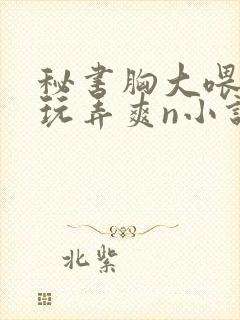 秘书胸大喂
玩弄爽n小
北紫